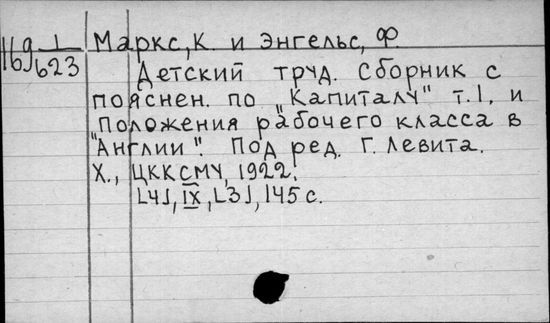 169 1/623 Маркс, К. и Энгельс, Ф.
Детский труд. Сборник с
пояснен. по "Капиталу" т.1. и
"Положения рабочего класса в
Англии". Под ред. Г. Левита.
Х., ЦККСМУ, 1922.
[4], IX, [3], 145 с.